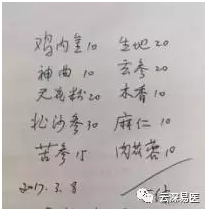 鸡内金10 生地20
神曲10 玄参20
天花粉20 木香10
北沙参30 麻仁10
苦参15 肉苁蓉10
2017.3.8
云深易医